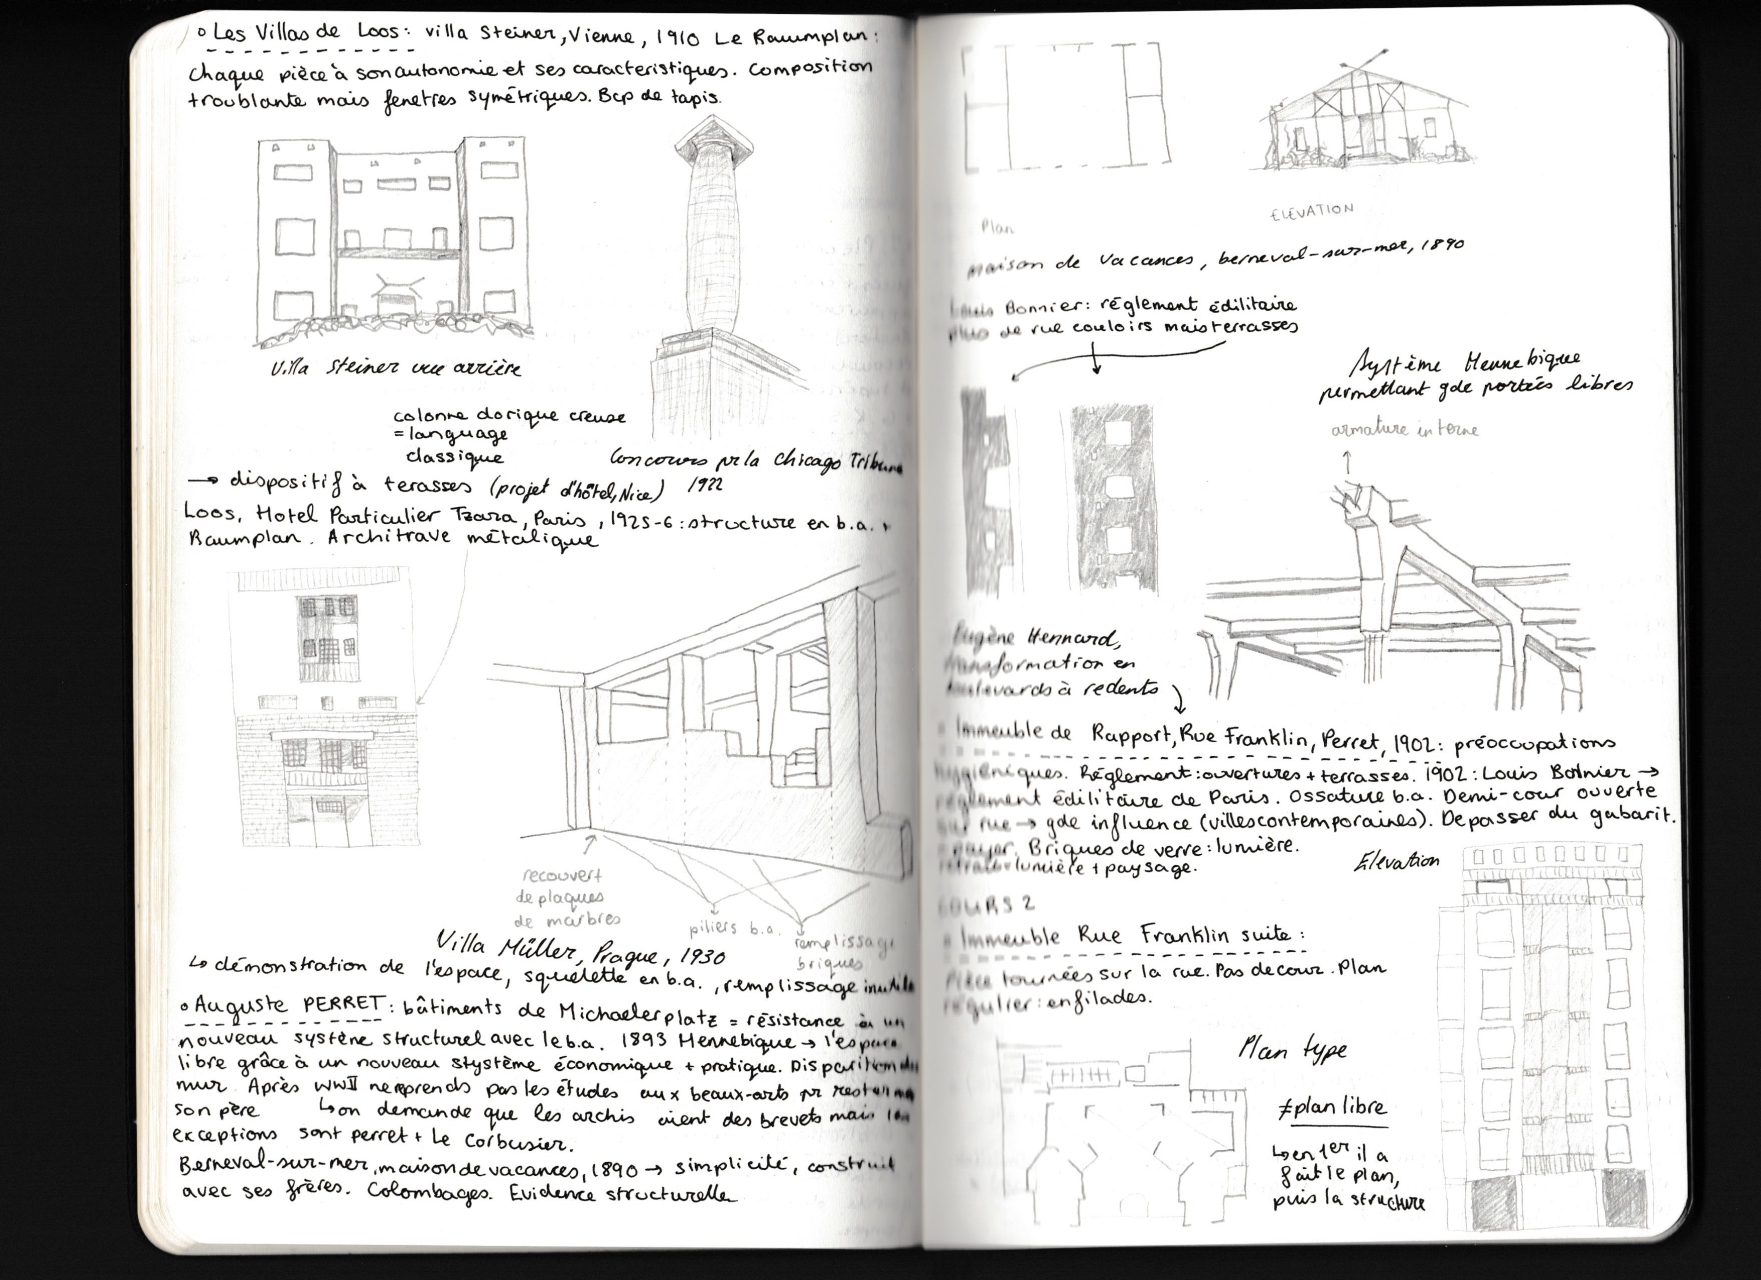 ° Les Villas de Loos : villa Steiner, Vienne, 1910 Le Raumplan :
chaque pièce à son autonomie et ses caracteristiques. Composition
troublante mais fenetres symétriques. Bcp de tapis.
Villa Steiner vue arrière
colonne dorique creuse
= language
classique
Concours pr la Chicago Tribune
1922
→ dispositif à terasses (projet d'hôtel, Nice)
Loos, Hotel Particulier Tzara, Paris, 1925-6 : structure en b.a. +
Raumplan. Architrave métalique
recouvert
de plaques
de marbres
piliers b.a.
remplissage
briques
Villa Müller, Prague, 1930
↳ démonstration de l'espace, squelette en b.a., remplissage inutile
° Auguste PERRET : bâtiments de Michaelerplatz = résistance à un
nouveau système structurel avec le b.a. 1893 Hennebique → l'espace
libre grâce à un nouveau stystème économique + pratique. Disparition du
mur. Après WWII ne reprends pas les études aux beaux-arts pr
son père ↳ on demande que les archis aient des brevets mais les
exceptions sont perret + Le Corbusier.
Berneval-sur-mer, maison de vacances, 1890 → simplicité, construit
avec ses frères. Colombages. Evidence structurelle
Plan
ELEVATION
maison de vacances, berneval-sur-mer, 1890
Louis Bonnier : réglement édilitaire
plus de rue couloirs mais terrasses
Système Hennebique
permettant gde portées libres
armature interne
Eugène Hennard,
transformation en
boulevards à redents
° Immeuble de Rapport, Rue Franklin, Perret, 1902 : préoccupations
hygiéniques. Réglement : ouvertures + terrasses. 1902 : Louis Bonnier →
réglement édilitaire de Paris. Ossature b.a. Demi-cour ouverte
sur rue → gde influence (villes contemporaines). Depasser du gabarit.
= payer. Briques de verre : lumière.
retrait = lumière + paysage.
Elevation
COURS 2
° Immeuble Rue Franklin suite :
Pièce tournées sur la rue. Pas de cour. Plan
régulier : enfilades.
Plan type
≠ plan libre
↳ en 1er il a
fait le plan,
puis la structure